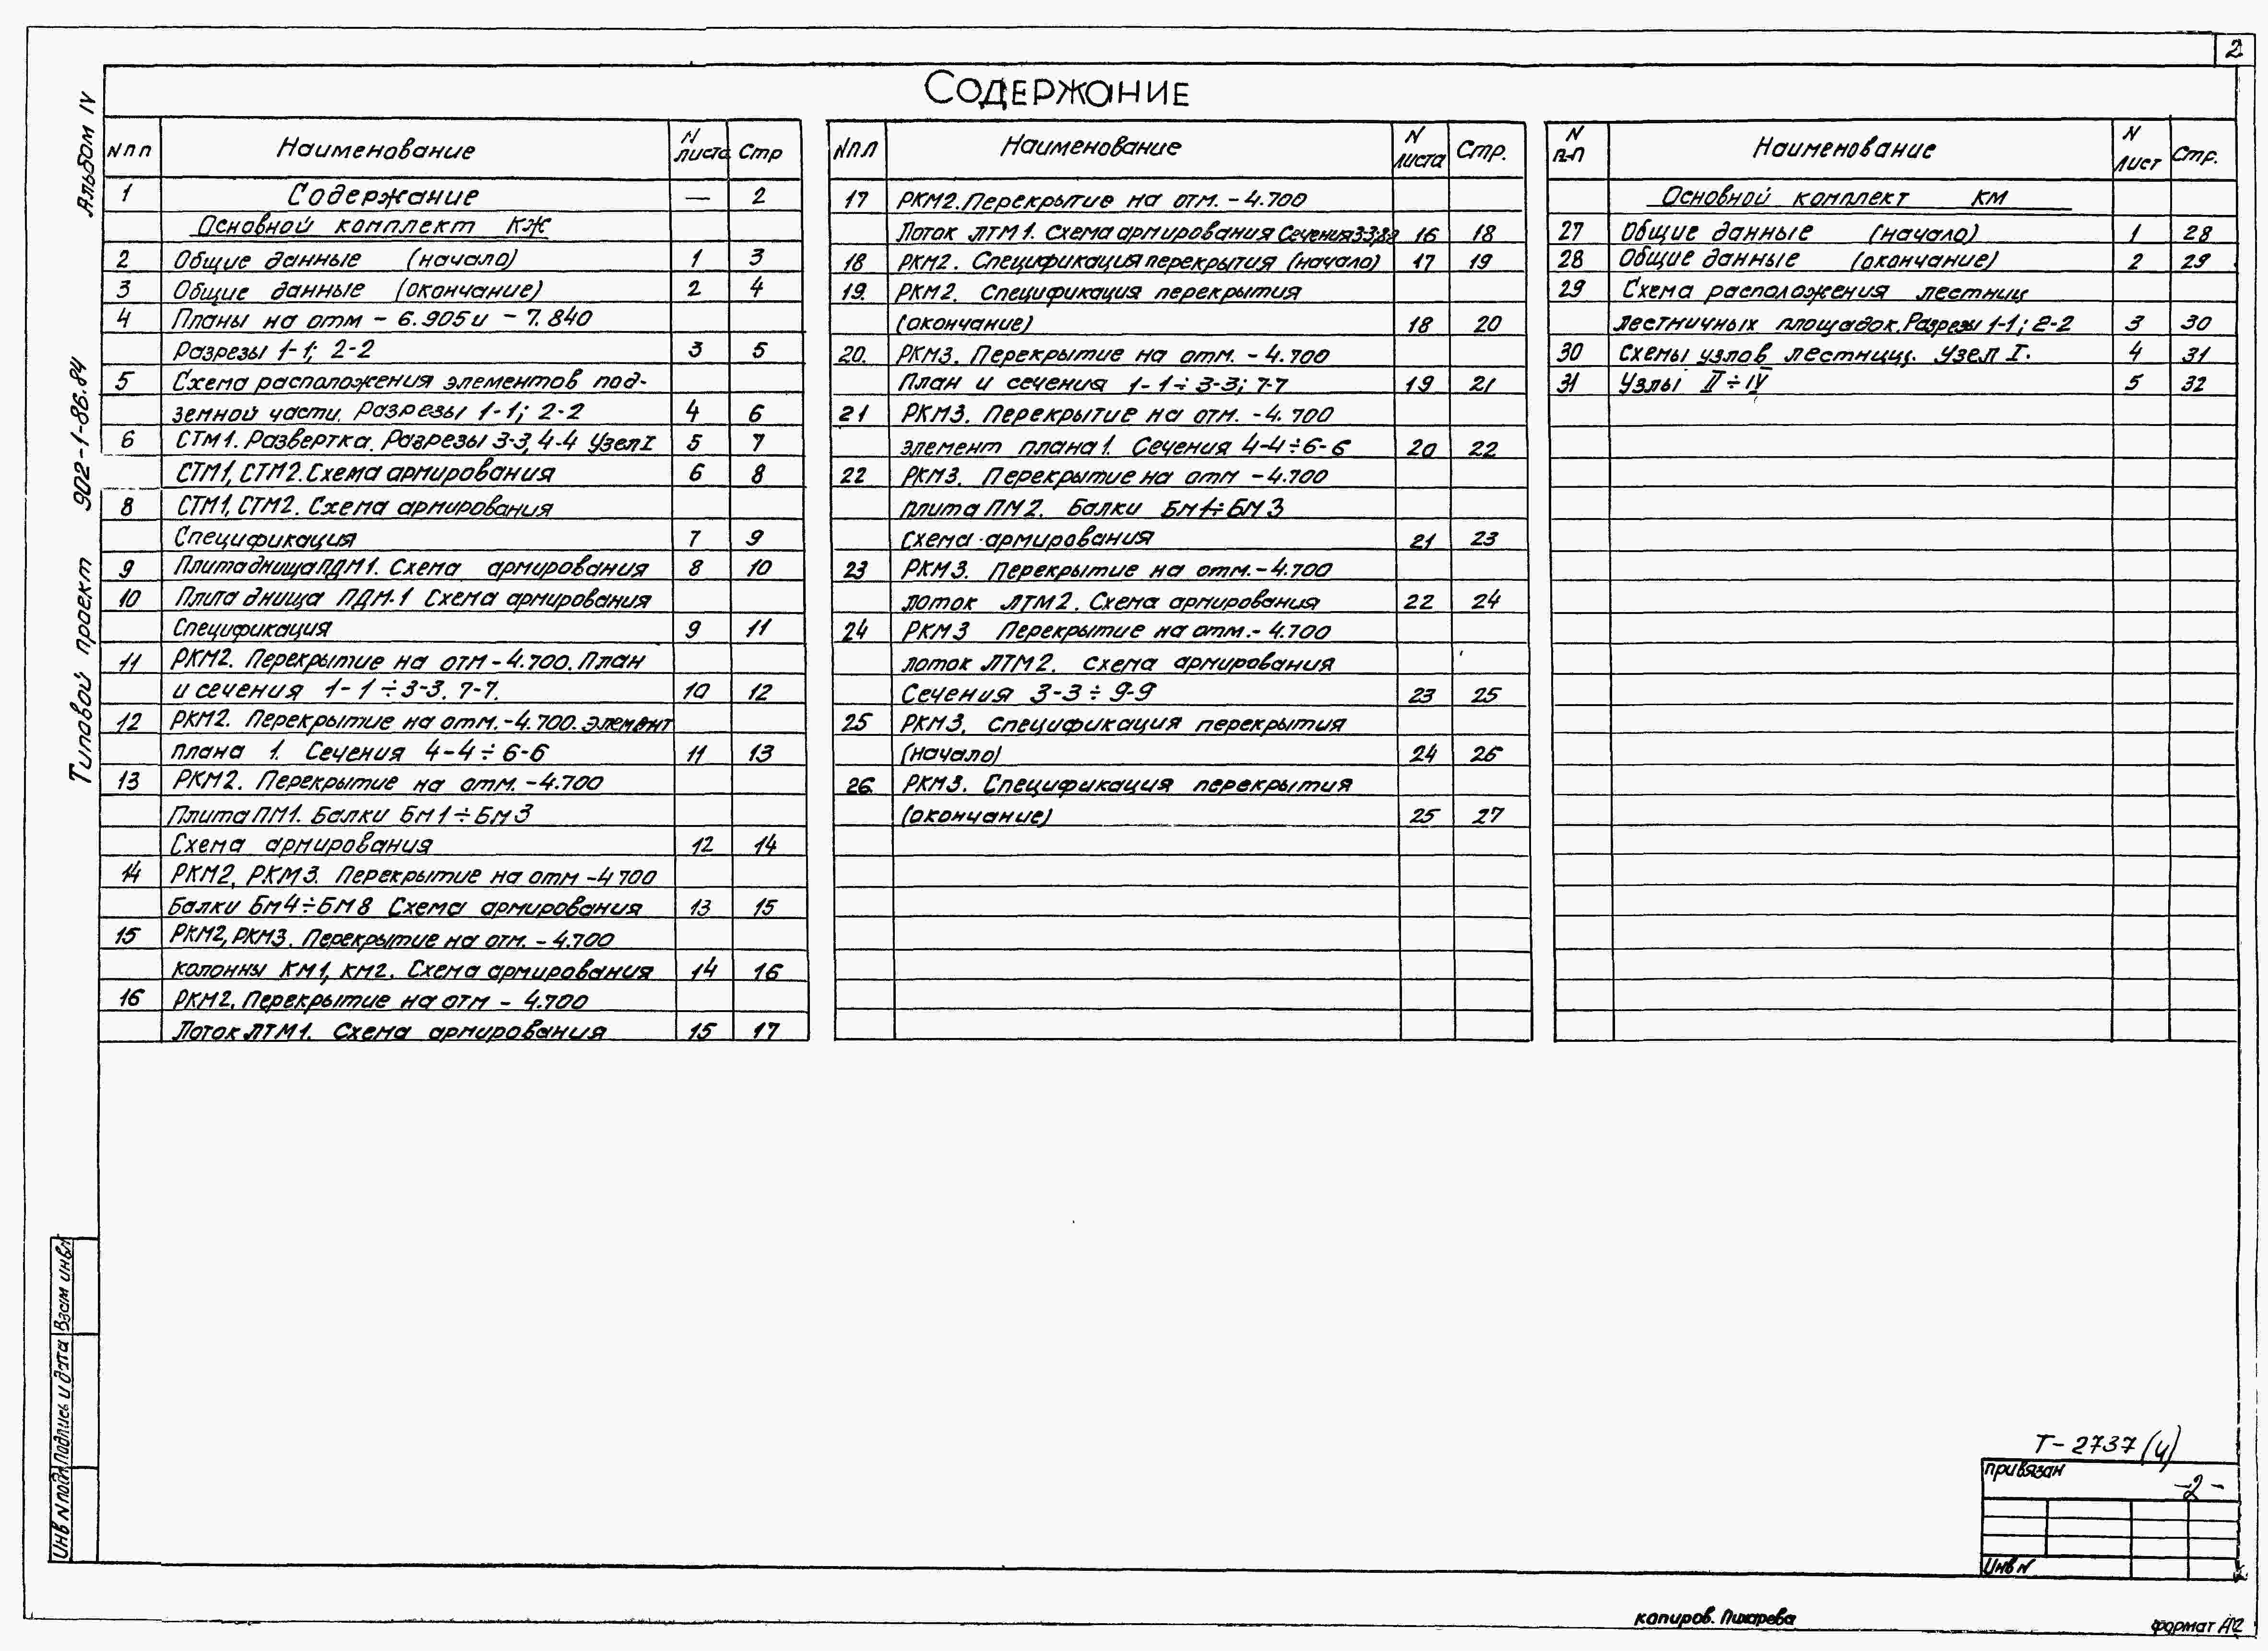 2
Содержание
Альбом IV
Типовой проект 902-1-86.84
N п п Наименование N листа Стр
1 Содержание — 2
Основной комплект КЖ
2 Общие данные (начало) 1 3
3 Общие данные (окончание) 2 4
4 Планы на отм - 6.905 и - 7.840
Разрезы 1-1; 2-2 3 5
5 Схема расположения элементов под-
земной части. Разрезы 1-1; 2-2 4 6
6 СТМ1. Развертка. Разрезы 3-3, 4-4 Узел I 5 7
СТМ1, СТМ2. Схема армирования 6 8
8 СТМ1, СТМ2. Схема армирования
Спецификация 7 9
9 Плита днища ПДМ1. Схема армирования 8 10
10 Плита днища ПДМ-1 Схема армирования
Спецификация 9 11
11 РКМ2. Перекрытие на отм - 4.700. План
и сечения 1-1 ÷ 3-3. 7-7. 10 12
12 РКМ2. Перекрытие на отм. - 4.700. Элемент
плана 1. Сечения 4-4 ÷ 6-6 11 13
13 РКМ2. Перекрытие на отм. - 4.700
Плита ПМ1. Балки БМ1 ÷ БМ3
Схема армирования 12 14
14 РКМ2, РКМ3. Перекрытие на отм - 4 700
Балки БМ4 ÷ БМ8 Схема армирования 13 15
15 РКМ2, РКМ3. Перекрытие на отм. - 4.700
колонны КМ1, КМ2. Схема армирования 14 16
16 РКМ2. Перекрытие на отм - 4.700
Лоток ЛТМ1. Схема армирования 15 17
N п.п Наименование N листа Стр.
17 РКМ2. Перекрытие на отм. - 4.700
Лоток ЛТМ1. Схема армирования Сечения 3-3, 8-8 16 18
18 РКМ2. Спецификация перекрытия (начало) 17 19
19. РКМ2. Спецификация перекрытия
(окончание) 18 20
20. РКМ3. Перекрытие на отм. - 4.700
План и сечения 1-1 ÷ 3-3; 7-7 19 21
21 РКМ3. Перекрытие на отм. - 4. 700
элемент плана 1. Сечения 4-4 ÷ 6-6 20 22
22 РКМ3. Перекрытие на отм - 4.700
плита ПМ2. Балки БМ1 ÷ БМ3
схема армирования 21 23
23 РКМ3. Перекрытие на отм. - 4.700
лоток ЛТМ2. Схема армирования 22 24
24 РКМ3 Перекрытие на отм. - 4.700
лоток ЛТМ2. схема армирования
Сечения 3-3 ÷ 9-9 23 25
25 РКМ3. Спецификация перекрытия
(начало) 24 26
26. РКМ3. Спецификация перекрытия
(окончание) 25 27
N п-п Наименование N лист Стр.
Основной комплект КМ
27 Общие данные (начало) 1 28
28 Общие данные (окончание) 2 29
29 Схема расположения лестниц
лестничных площадок. Разрезы 1-1; 2-2 3 30
30 Схемы узлов лестницы. Узел I. 4 31
31 Узлы II ÷ IV 5 32
Взам инв N
Подпись и дата
Инв N подл
Т - 2737 (4)
привязан
-2-
Инв N
копиров. Пикарева
формат А2